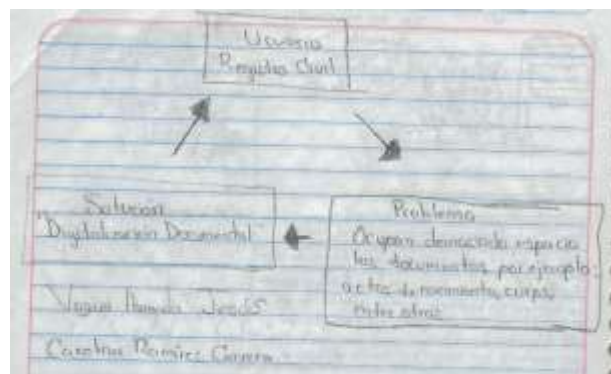 Usuario
Registro Civil
Solución
Digitalización Documental
Problema
Ocupan demaciado espacio
los documentos, por ejemplo:
actas de nacimiento, curps,
entre otras
Jesús
Carolina Ramírez